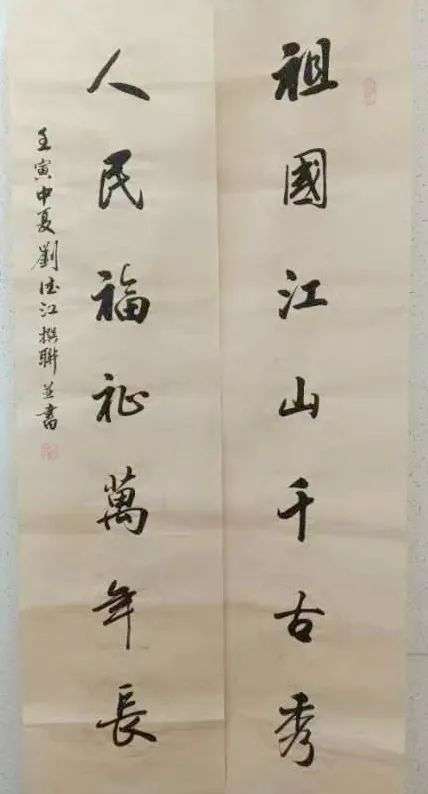 祖國江山千古秀
人民福祉萬年長
壬寅中夏劉德江撰聯並書